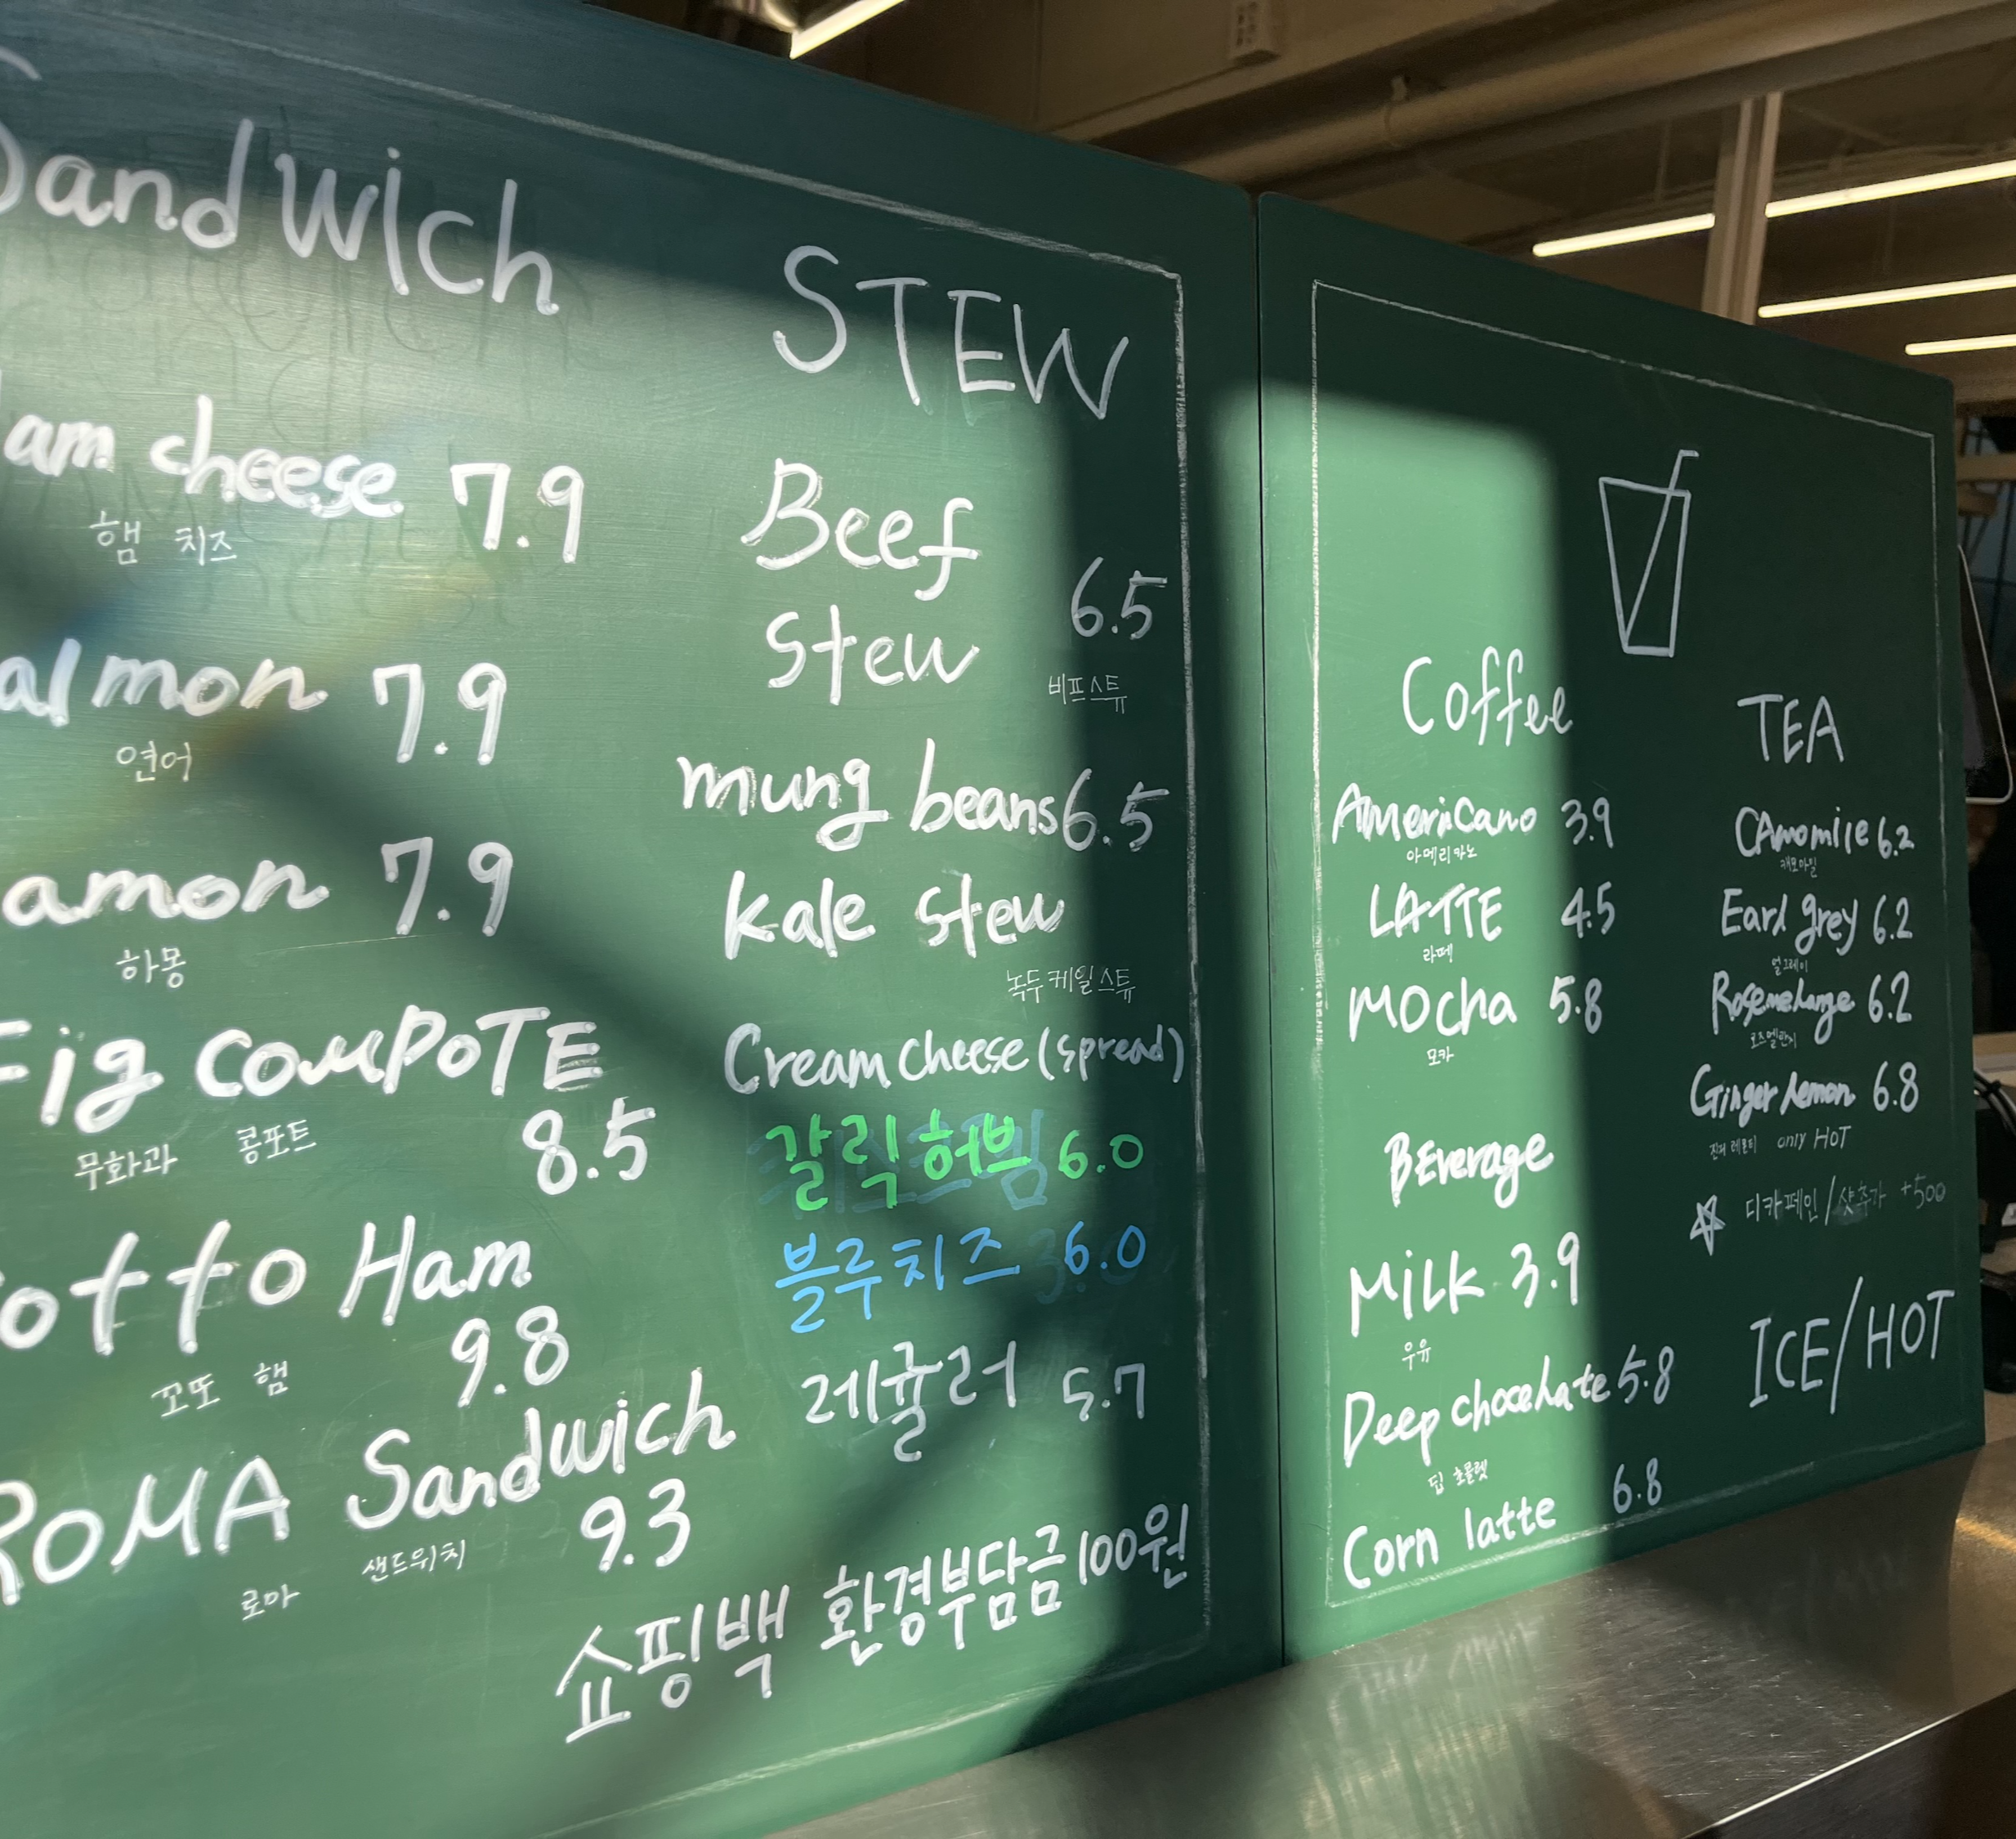 Sandwich
am cheese 7.9
햄 치즈
almon 7.9
연어
amon 7.9
하몽
Fig COMPOTE
8.5
무화과 콩포트
otto Ham
9.8
꼬또 햄
ROMA Sandwich
9.3
로마 샌드위치
STEW
Beef
Stew 6.5
비프스튜
mung beans 6.5
kale stew
녹두케일스튜
Cream cheese (spread)
갈릭허브 6.0
블루치즈 6.0
레귤러 5.7
쇼핑백 환경부담금 100원
Coffee
Americano 3.9
아메리카노
LATTE 4.5
라떼
Mocha 5.8
모카
BEverage
MiLK 3.9
우유
Deep chocolate 5.8
딥 초콜렛
Corn latte 6.8
TEA
CAmomile 6.2
캐모마일
Earl grey 6.2
얼그레이
Rosemelange 6.2
로즈멜란지
Ginger lemon 6.8
진저 레몬티 only HOT
☆ 디카페인/샷추가 +500
ICE/HOT